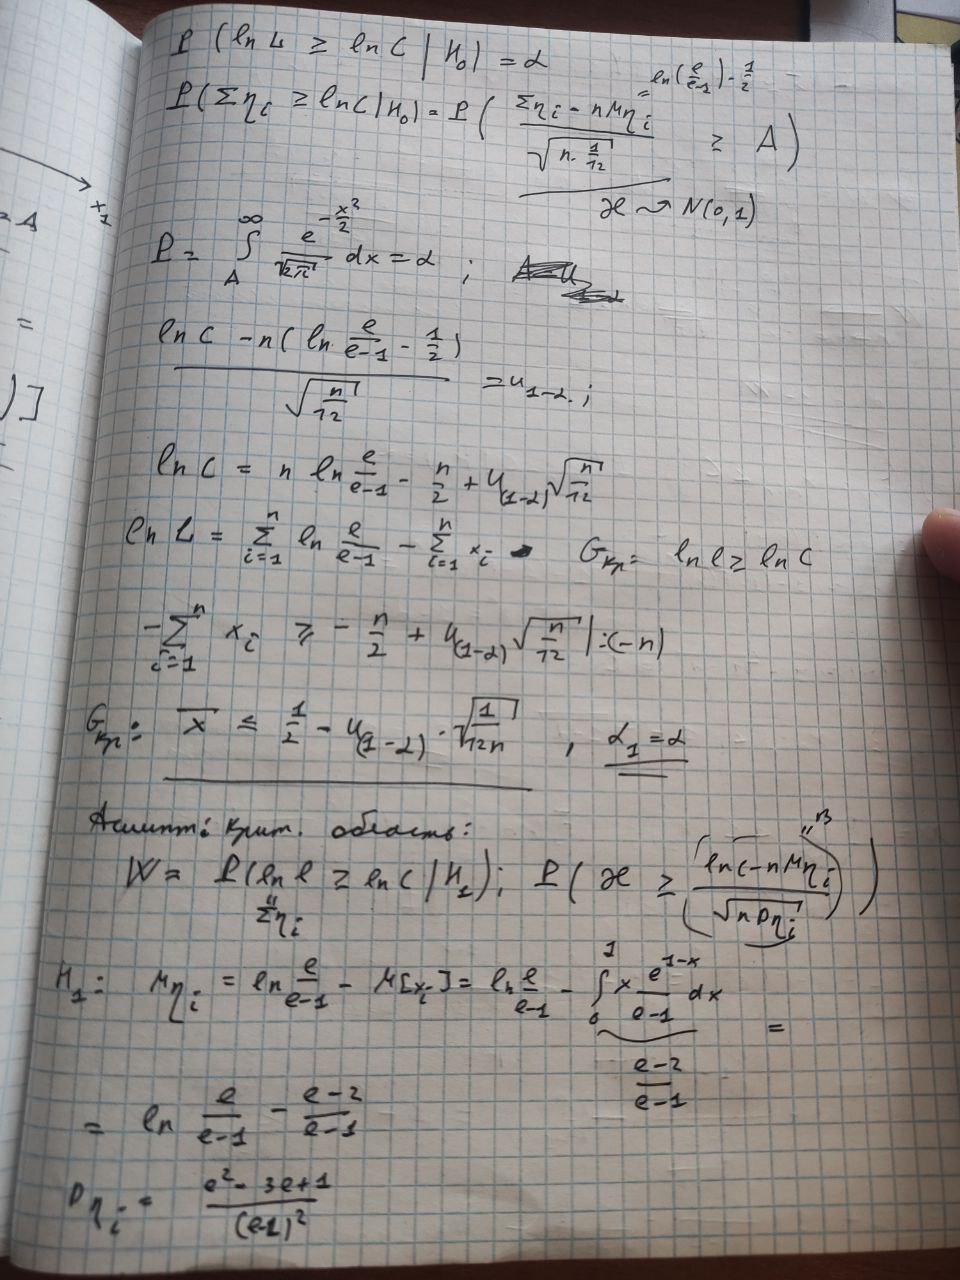 P (ln L ≥ ln C | H₀) = α
= ln(e/(e-1)) - 1/2
P(Σηᵢ ≥ ln C | H₀) = P( (Σηᵢ - nMηᵢ)/√(n·1/12) ≥ A )
ϰ ⤳ N(0,1)
P = ∫_A^∞ e^(-x²/2)/√(2π) dx = α ;
(ln C - n( ln e/(e-1) - 1/2 ))/√(n/12) = u_(1-α) ;
ln C = n ln e/(e-1) - n/2 + u_(1-α) √(n/12)
ln L = Σ_(i=1)^n ln e/(e-1) - Σ_(i=1)^n xᵢ G_кр = ln l ≥ ln C
-Σ_(i=1)^n xᵢ ≥ - n/2 + u_(1-α) √(n/12) | :(-n)
G_кр: x̄ ≤ 1/2 - u_(1-α) · √(1/12n) , α₁ = α
Асимпт. крит. область:
W = P(ln l ≥ ln C | H₁) ; P( ϰ ≥ ( (ln C - nMηᵢ)/√(nDηᵢ) ) )
" Σηᵢ
" B
H₁: Mηᵢ = ln e/(e-1) - M[xᵢ] = ln e/(e-1) - ∫₀¹ x e^(1-x)/(e-1) dx =
(e-2)/(e-1)
= ln e/(e-1) - (e-2)/(e-1)
Dηᵢ = (e² - 3e + 1)/(e-1)²
x₁
= A
=
)]